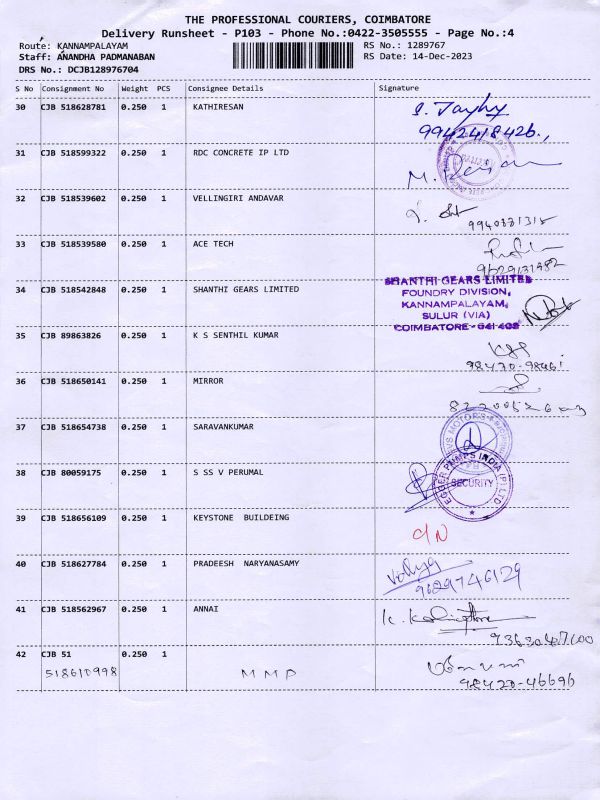 THE PROFESSIONAL COURIERS, COIMBATORE
Delivery Runsheet - P103 - Phone No.:0422-3505555 - Page No.:4
Route: KANNAMPALAYAM RS No.: 1289767
Staff: ANANDHA PADMANABAN RS Date: 14-Dec-2023
DRS No.: DCJB128976704
S No Consignment No Weight PCS Consignee Details Signature
30 CJB 518628781 0.250 1 KATHIRESAN
9942418426.,
31 CJB 518599322 0.250 1 RDC CONCRETE IP LTD
32 CJB 518539602 0.250 1 VELLINGIRI ANDAVAR
9940831315
33 CJB 518539580 0.250 1 ACE TECH
9629131982
34 CJB 518542848 0.250 1 SHANTHI GEARS LIMITED
SHANTHI GEARS LIMITED
FOUNDRY DIVISION,
KANNAMPALAYAM,
SULUR (VIA)
COIMBATORE-641 402
35 CJB 89863826 0.250 1 K S SENTHIL KUMAR
98470-98461
36 CJB 518650141 0.250 1 MIRROR
37 CJB 518654738 0.250 1 SARAVANKUMAR
38 CJB 80059175 0.250 1 S SS V PERUMAL
EGGER PUMPS INDIA (P) LTD
SECURITY
39 CJB 518656109 0.250 1 KEYSTONE BUILDEING
40 CJB 518627784 0.250 1 PRADEESH NARYANASAMY
9629746129
41 CJB 518562967 0.250 1 ANNAI
9363047600
42 CJB 51 0.250 1
518610998 MMP
98420-46696